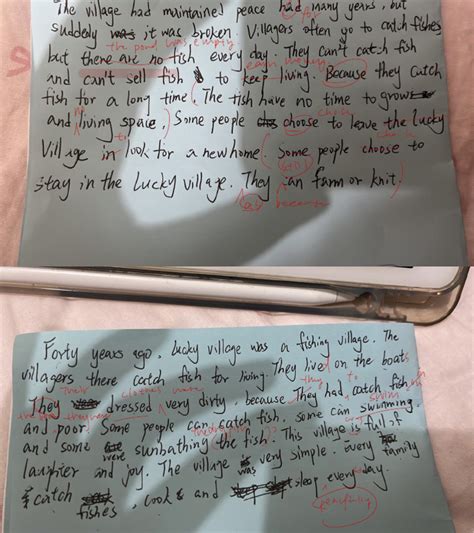 The village had maintained peace for many years, but
suddely it was broken. Villagers often go to catch fishes
the pond was empty
but there are no fish every day. They can't catch fish
earn money
and can't sell fish to keep living. Because they catch
fish for a long time. The fish have no time to grow
and living space. Some people choose to leave the lucky
to
Village in look for a new home. Some people choose to
still
stay in the lucky village. They can farm or knit.
because
Forty years ago, lucky village was a fishing village. The
villagers there catch fish for living. They lived on the boats
clothes were
They dressed very dirty, because They had catch fish
and poor. Some people can catch fish, some can swimming
swim
and some were sunbathing the fish. This village is full of
laughter and joy. The village was very simple. Every family
catch fishes, cook and sleep everyday.
peacefully